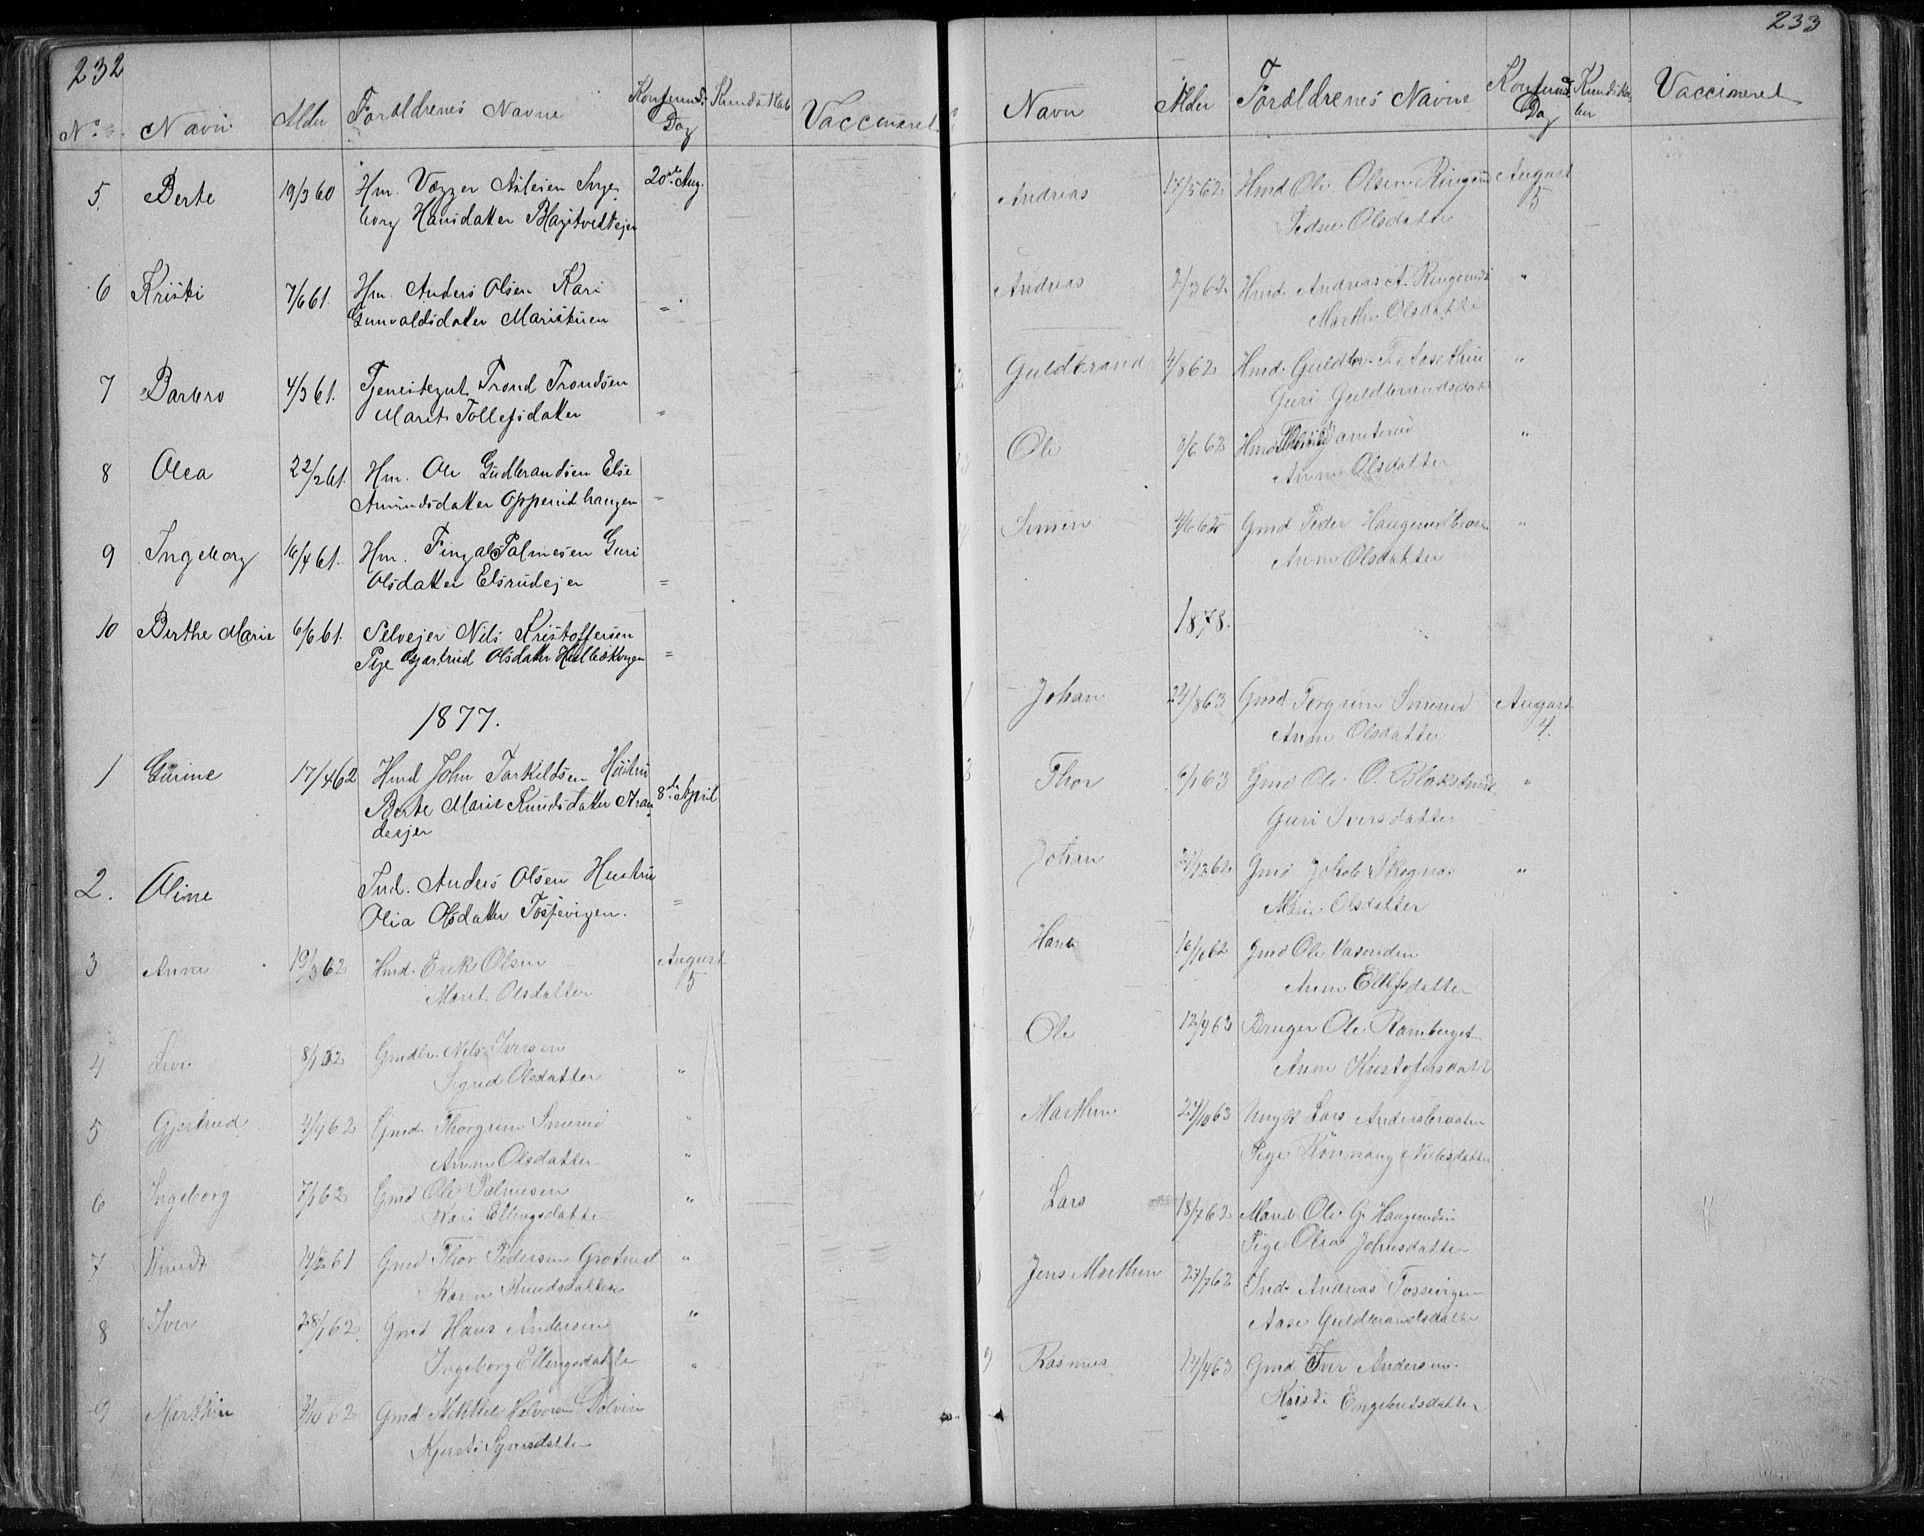 232
No. Navn Alder Forældrenes Navne Konfirmd. Dag Kundskab Vaccineret
5 Berte 19/3 60 Hm. Asle­sen Inge
borg Hansdatter
20de Aug.
6 Kristi 7/6 61. Hm. Anders Olsen Kari
Gunvaldsdatter Mariskuen "
7 Barbro 4/3 61. Tjenestegut Trond Trondsen
Marit Tollefsdatter "
8 Olea 22/2 61. Hm. Ole Gudbrandsen Else
Amundsdatter Opperudhaugen "
9 Ingeborg 16/4 61. Hm. Fingal Palmesen Guri
Olsdatter Elsrudejer "
10 Berthe Marie 6/6 61. Selvejer Nils Kristoffersen
Pige Gjærtrud Olsdatter "
1877.
1 Gurine 17/4 62 Hmd John Torkildsen Hustru
Berte Marie Knudsdatter
dsejer
8de April
2. Oline Ind. Anders Olsen Hustru
Olia Olsdatter Tossevigen. "
3 Anne 19/3 62 Hmd. Erik Olsen August
Marit Olsdatter 5
4 8/1 62 Gmdbr. Nels Iversen
Sigrid Olsdatter "
5 Gjertrud 4/4 62 Gmd. Thorgrim Smerud "
Anne Olsdatter "
6 Ingeborg 7/1 62 Gmd Ole Palmesen "
Kari Ellingsdatter
7 Knud 61 Gmd Thor Pedersen Grøtrud "
Karen Knudsdatter
8 Iver 28/1 62 Gmd Hans Andersen "
Ingeborg Ellingsdatte "
9 Marthin 62 Gmd Mikkel Halvorsen Dolvin
Kjersti Syversdatte
233
Navn Alder Forældrenes Navne Konfirmd. Dag Kundskaber Vaccineret
Andreas 17/5 62 Hmd Ole Olsen August
Olsdatter 5
Andreas 2/3 62 Hmd. Andreas A. "
Marthe Olsdatte
Guldbrand 4/8 62 Hmd. Guldbr. T. "
Guri Guldbrandsdatt
Ole 9/6 62 Hmd "
Anne Olsdatter
Simen 4/6 62 Gmd Peder "
Anne Olsdatter
1878.
1 Johan 24/8 63 Gmd Torgrim Smerud August
Anne Olsdatter 4.
2 Thor 6/1 63 Gmd Ole O. "
Guri Iversdatter
Johan 21/12 62 Gmd Jakob "
Marie Olsdatter
Hans 16/1 62 Gmd Ole Vasenden
Anne Ellefsdatter
Ole 12/4 63 Bruger Ole Ramberget
Anne Kristofersdatt
Marthin 27/10 63 Ungk Lars Andersbraaten
Pige Rönnaug Nielsdatter
Lars 18/7 62 Mand Ole G.
Pige Olea Johnsdatter
Jens Marthin 27/7 62 Ind. Andreas Tossevigen
Aase Guldbrandsdatte
9 Rasmus 14/4 63 Gmd Iver Andersen.
Kristi Engebretsdatter